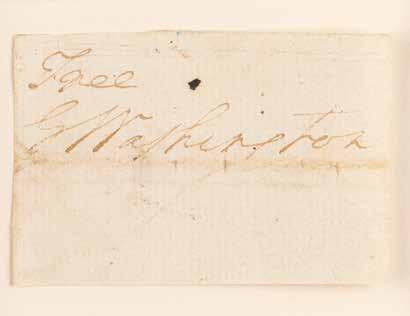 Free
GWashington